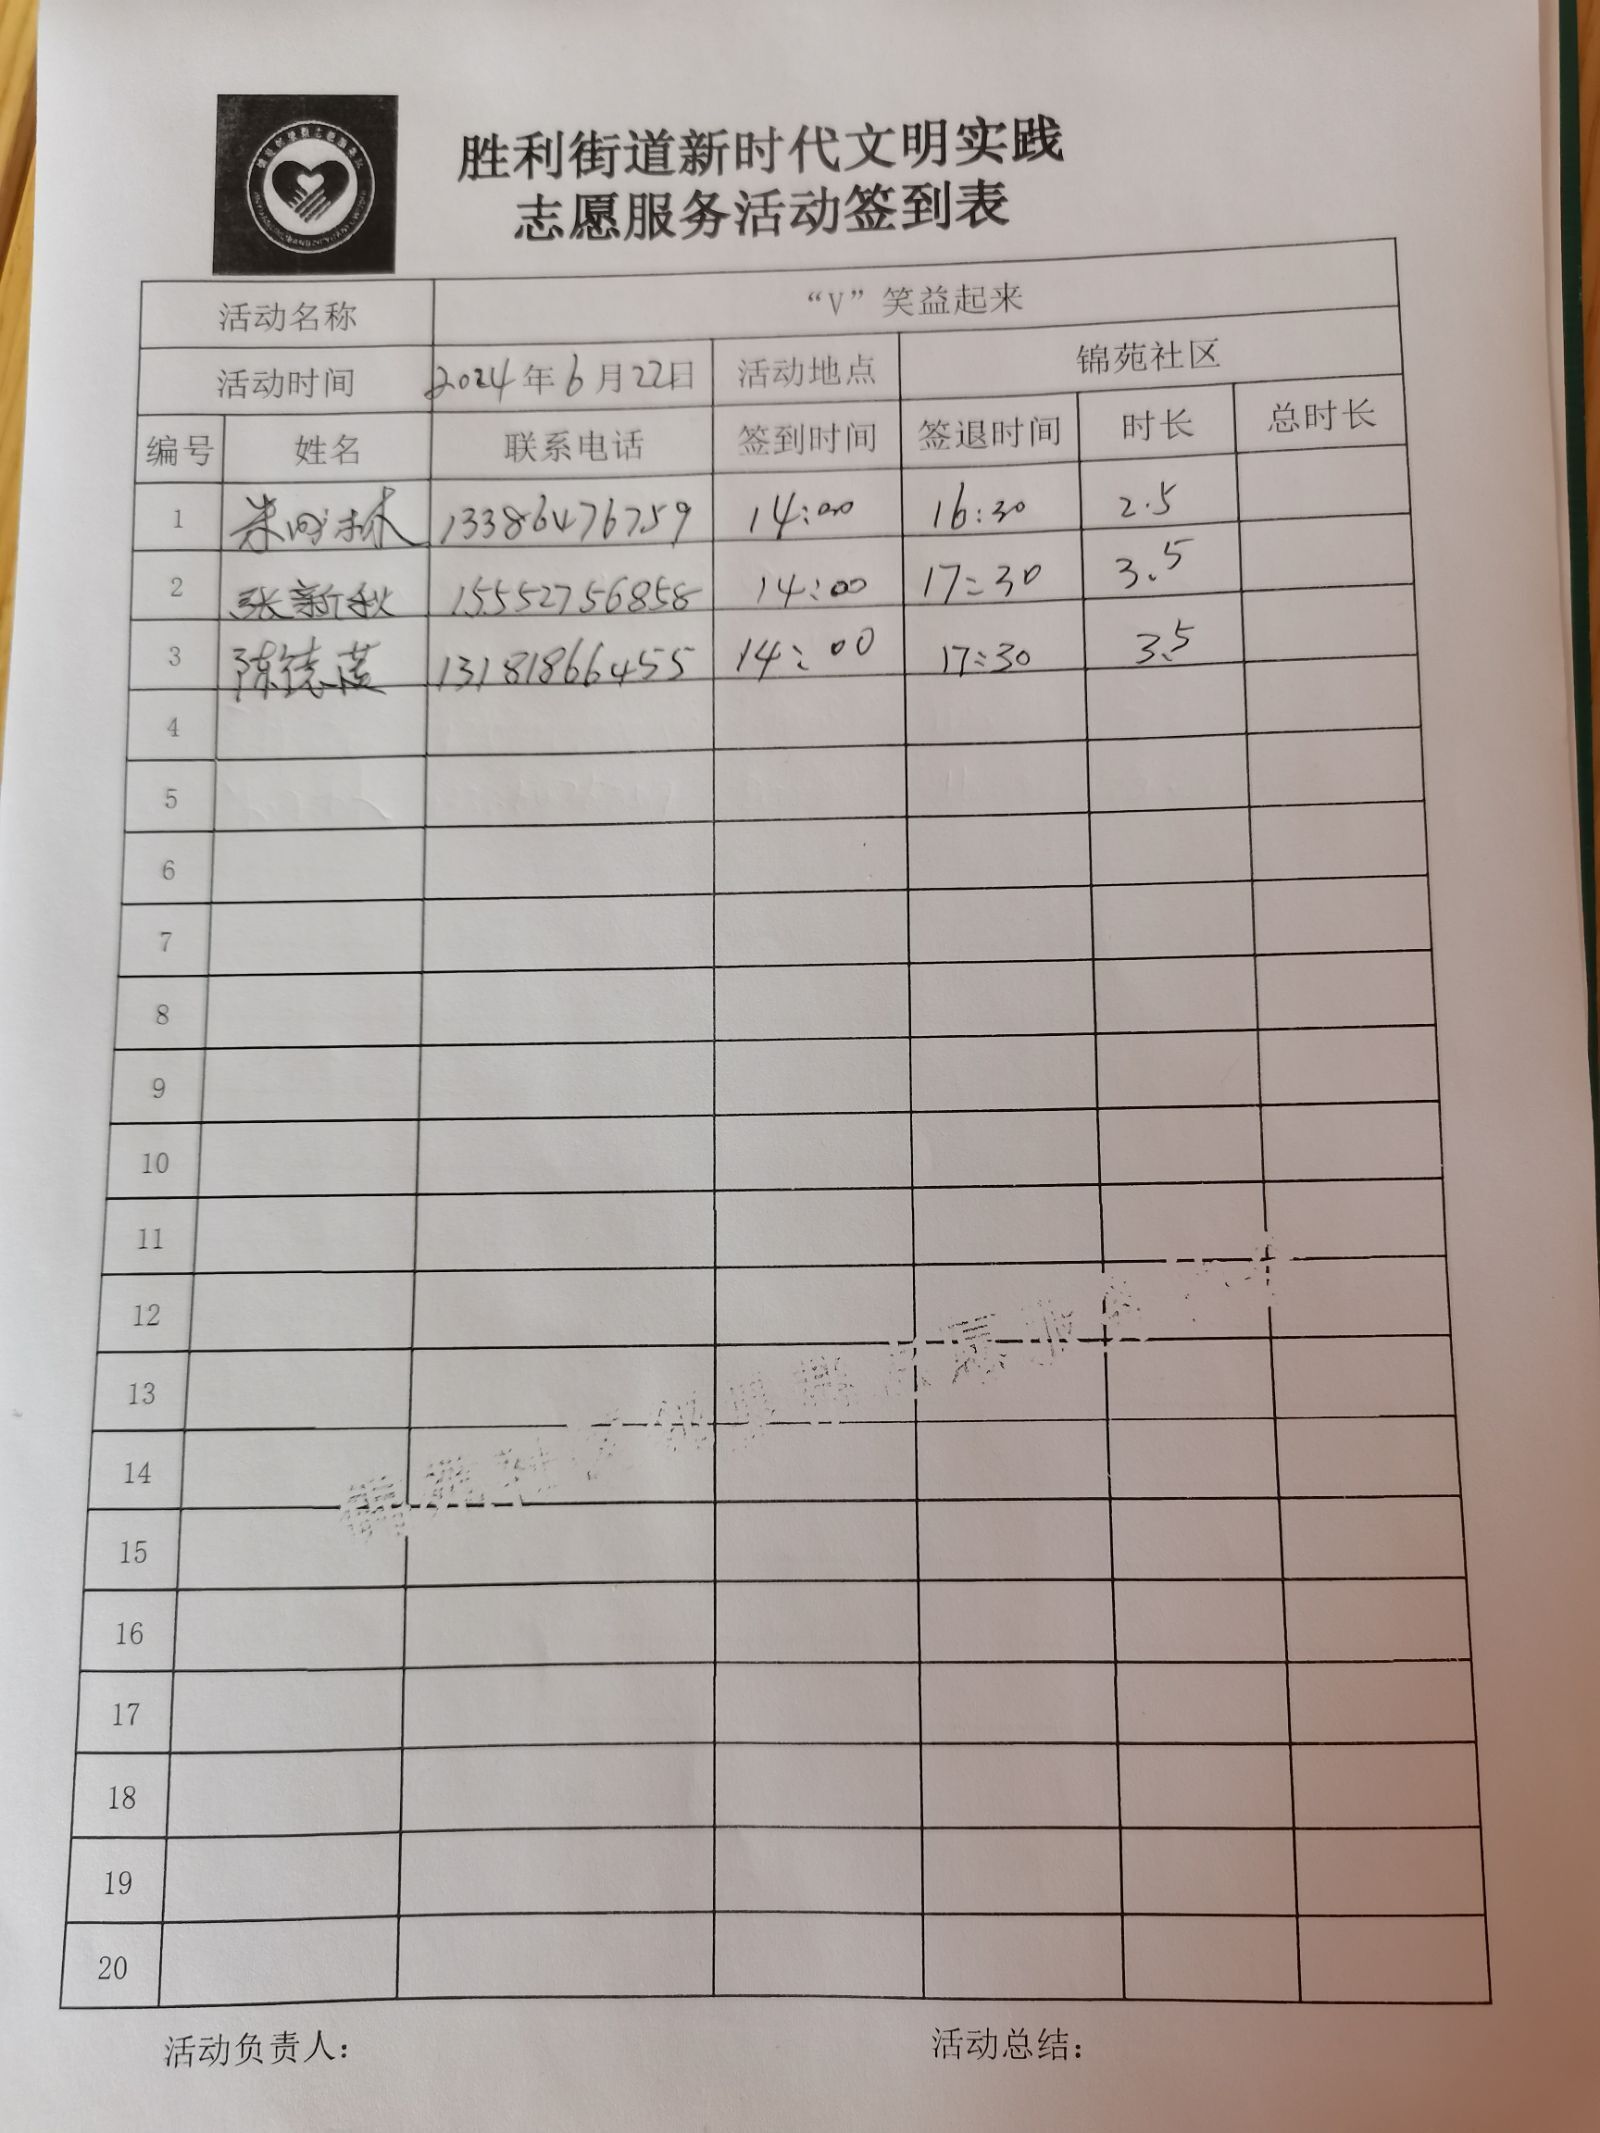 胜利街道新时代文明实践
志愿服务活动签到表
活动名称 “V”笑益起来
活动时间 2024年6月22日 活动地点 锦苑社区
编号 姓名 联系电话 签到时间 签退时间 时长 总时长
1 13386476759 14:00 16:30 2.5
2 张新秋 15552756858 14:00 17:30 3.5
3 13181866455 14:00 17:30 3.5
4
5
6
7
8
9
10
11
12
13
14
15
16
17
18
19
20
活动负责人: 活动总结: